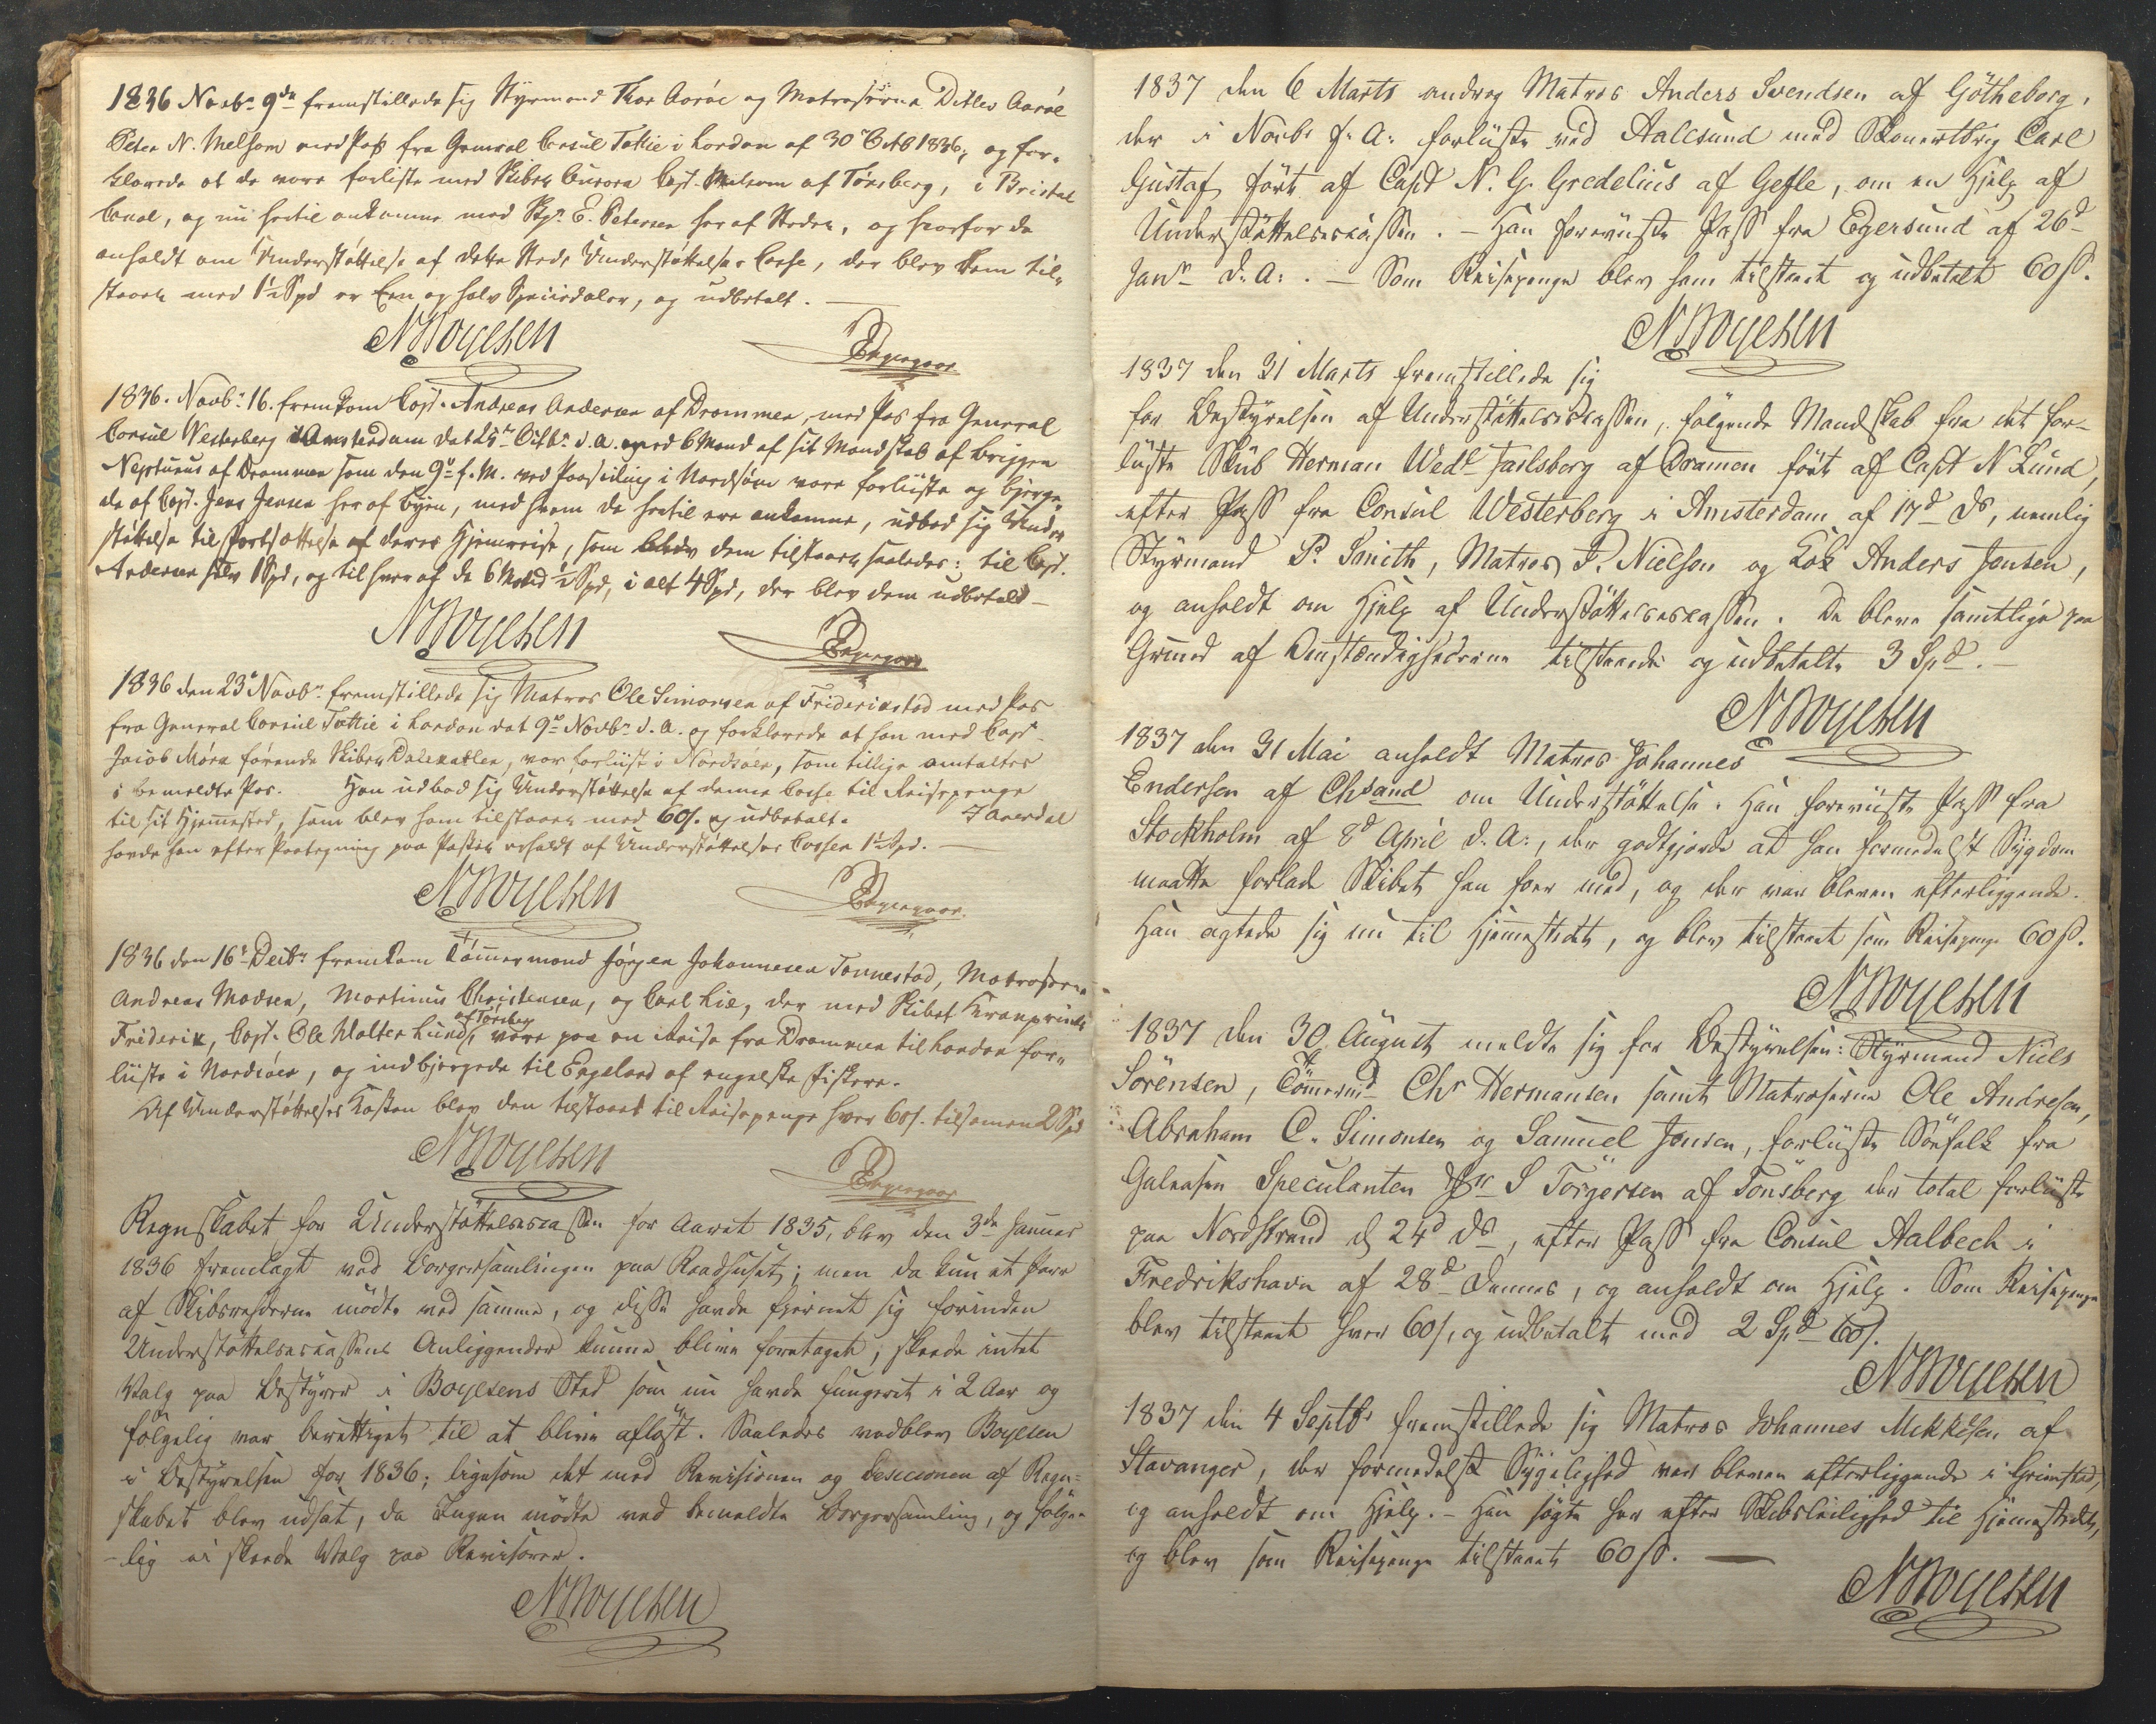 1836 Novbr 9de fremstillede sig Styrmand Thor Aarøe og Matroserne Ditlev Aarøe
Peter N. Melsom med Pas fra General Consul Tottie i London af 30te Octb 1836, og for-
klarede at de vare forliste med Skibet Aurora Capt. Melsom af Tønsberg, i Bristol
Canal, og nu hertil ankomne med Skpr E. Petersen her af Steden, og hvorfor de
anholdt om Understøttelse af dette Steds Understøttelses Casse, der blev dem til-
staaet med 1½ Spd er Een og halv Speciedaler, og udbetalt.
NBoyesen
1836. Novbr 16. fremkom Capt. Andreas Andersen af Drammen, med Pas fra General
Consul Westerberg i Amsterdam dat 25de Octbr d. A. med 6 Mand af sit Mandskab af Briggen
Neptunus af Drammen som den 9de f. M. ved Paaseiling i Nordsøen vare forliste og bjerge-
de af Capt. Jens Jensen her af Byen, med hvem de hertil ere ankomne, udbad sig Under-
støttelse til Fortsættelse af deres Hjemreise, som blev dem tilstaaet saaledes: til Capt.
Andersen selv 1 Spd, og til hver af de 6 Mand ½ Spd, i alt 4 Spd, der blev dem udbetald
NBoyesen
1836 den 23de Novbr fremstillede sig Matros Ole Simonsen af Friderikstad med Pas
fra General Consul Tottie i London dat 9de Novbr d. A. og forklarede at han med Capt
Jacob Mørn førende Skibet Dalekarlen, var forliist i Nordsøen, som tillige omtaltes
i bemeldte Pas. Han udbad sig Understøttelse af denne Casse til Reisepenge
til sit Hjemmested, som blev ham tilstaaet med 60 s. og udbetalt. I Arendal
havde han efter Paategning paa Passet erholdt af Understøttelses Cassen 1½ Spd.
NBoyesen
1836 den 16de Decbr fremkom Tømmermand Jørgen Johannesen Tonnestad, Matroserne
Andreas Madsen, Martinus Christensen, og Carl Lie, der med Skibet Kronprinds
af Tønsberg
Friderik, Capt. Ole Wolter Lund, vare paa en Reise fra Drammen til London for-
liiste i Nordsøen, og indbjergede til Engeland af engelske Fiskere.
Af Understøttelses Kassen blev dem tilstaaet til Reisepenge hver 60 s. tilsamen 2 Spd
NBoyesen
Regnskabet for Understöttelsescassen for Aaret 1835, blev den 3de Januar
1836 fremlagt ved Borgersamlingen paa Raadhuset; men da kun et Par
af Skibsrehderne mödte ved samme, og disse havde fjernet sig forinden
Understöttelsescassens Anliggender kunne blive foretaget, skeede intet
Valg paa Bestyrer i Boyesens Sted som nu havde fungeret i 2 Aar og
fölgelig var berettiget til at blive aflöst. Saaledes vedblev Boyesen
i Bestyrelsen for 1836; ligesom det med Revisionen og Desicionen af Regn-
skabet blev udsat, da Ingen mödte ved bemeldte Borgersamling, og fölge-
-lig ei skeede Valg paa Revisorer.
NBoyesen
1837 den 6 Marts androg Matros Anders Svendsen af Götheborg,
der i Novbr f. A: forliiste ved Aalesund med Skonnertbrig Carl
Gustaf fört af Capt N. G. Gredelius af Gefle, om en Hjelp af
Understöttelsescassen. – Han foreviiste Pass fra Egersund af 26d
Janr d. A:. – Som Reisepenge blev ham tilstaaet og udbetalt 60 ß.
NBoyesen
1837 den 31 Marts fremstillede sig
for Bestyrelsen af Understöttelsescassen, fölgende Mandskab fra det for-
liiste Skib Herman Wedl Jarlsberg af Dramen fört af Capt N Lund,
efter Pass fra Consul Westerberg i Amsterdam af 17d ds, nemlig
Styrmand P. Smith, Matros P. Nielsen og Kok Anders Jensen,
og anholdt om Hjelp af Understöttelsescassen. De bleve samtlige paa
Grund af Omstændighederne tilstaaede og udbetalte 3 Spd. –
NBoyesen
1837 den 31 Mai anholdt Matros Johannes
Endersen af Chsand om Understöttelse. Han foreviiste Pass fra
Stockholm af 8d April d. A:, der godtgjorde at han formedelst Sygdom
maatte forlade Skibet han foer med, og der var bleven efterliggende.
Han agtede sig nu til Hjemstedet, og blev tilstaaet som Reisepenge 60 ß.
NBoyesen
1837 den 30 August meldte sig for Bestyrelsen: Styrmand Niels
Sörensen, Tömermd Chr Hermansen samt Matroserne Ole Andresen,
Abraham C. Simonsen og Samuel Jensen, forliiste Söefolk fra
Galeasen Speculanten Skr S Törgersen af Tönsberg der total forliiste
paa Nordstrand d 24d ds, efter Pass fra Consul Aalbech i
Fredrikshavn af 28d dennes, og anholdt om Hjelp. Som Reisepenge
blev tilstaaet hver 60 ß, og udbetalt med 2 Spd 60 ß.
NBoyesen
1837 den 4 Septbr fremstillede sig Matros Johannes Mikkelsen af
Stavanger, der formedelst Sygelighed var bleven efterliggende i Grimstad,
og anholdt om Hjelp. – Han sögte her efter Skibsleilighed til Hjemstedet,
og blev som Reisepenge tilstaaet 60 ß. —
NBoyesen